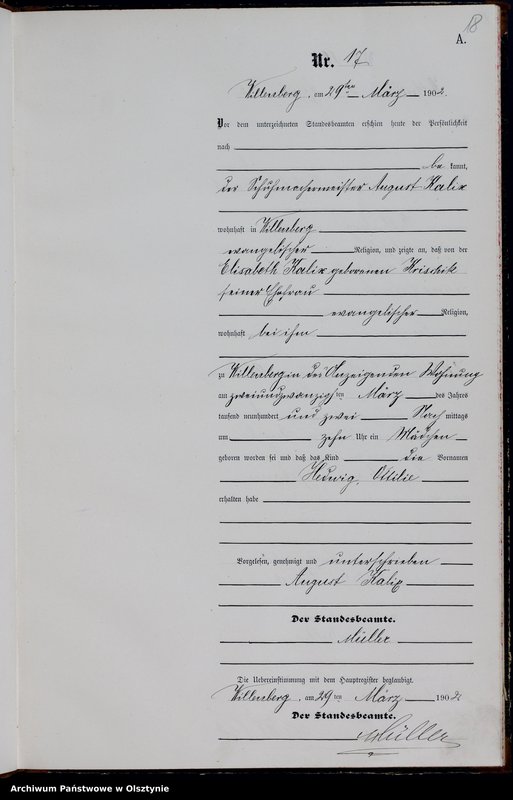 18
A.
Nr. 17
Willenberg, am 29ten März 1902.
Vor dem unterzeichneten Standesbeamten erschien heute der Persönlichkeit
nach
be kannt,
der Schuhmachermeister August Kalix
wohnhaft in Willenberg
evangelischer Religion, und zeigte an, daß von der
Elisabeth Kalix geborenen
seiner Ehefrau
evangelischer Religion,
wohnhaft bei ihm
zu Willenberg in des Anzeigenden Wohnung
am zweiundzwanzigsten März des Jahres
tausend neunhundert und zwei Nach mittags
um zehn Uhr ein Mädchen
geboren worden sei und daß das Kind die Vornamen
Hedwig, Ottilie
erhalten habe
Vorgelesen, genehmigt und unterschrieben
August Kalix
Der Standesbeamte.
Müller
Die Uebereinstimmung mit dem Hauptregister beglaubigt.
Willenberg, am 29 ten März 1902
Der Standesbeamte.
Müller
Archiwum Państwowe w Olsztynie